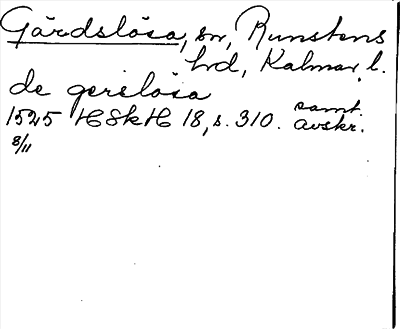 Gärdslösa, sn, Runstens
hd, Kalmar l.
de gerelösa
1525 HSkH 18, s. 310. samt. avskr.
8/11